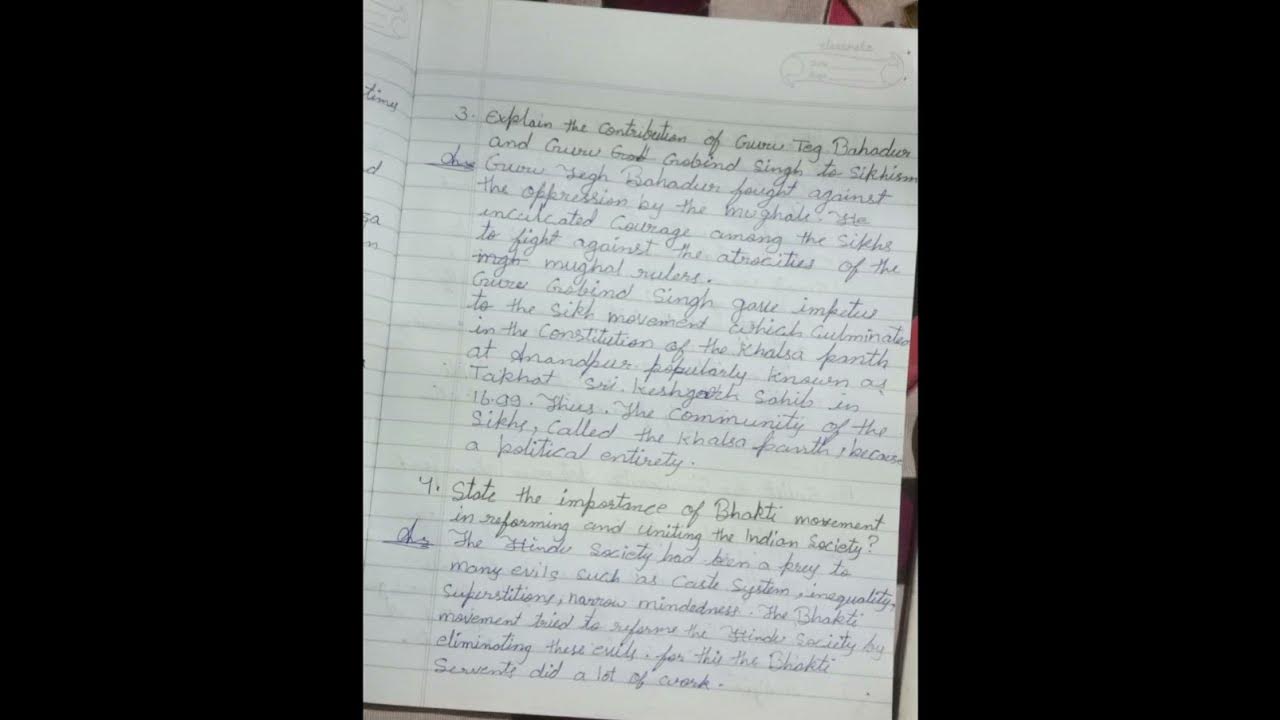 classmate
Date
Page
times
d
sa
n
3. Explain the contribution of Guru Teg Bahadur
and Guru Gobind Singh to Sikhism
Ans Guru Tegh Bahadur fought against
the oppression by the mughals. He
inculcated Courage among the Sikhs
to fight against the atrocities of the
mgh mughal rulers.
Guru Gobind Singh gave impetus
to the Sikh movement which Culminated
in the Constitution of the Khalsa panth
at Anandpur popularly known as
Takhat Sri Keshgarh Sahib in
16.99. Thus. The Community of the
Sikhs, Called the Khalsa panth, because
a political entirety.
4. State the importance of Bhakti movement
in reforming and uniting the Indian Society?
Ans The Hindu Society had been a prey to
many evils such as Caste System, inequality,
Superstitions, narrow mindedness. The Bhakti
movement tried to reforme the Hindu Society by
eliminating these evils. for this the Bhakti
Servents did a lot of work.